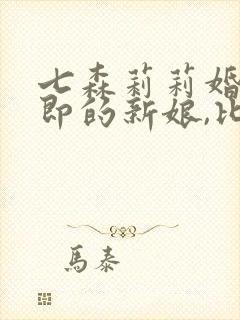 七森莉莉婚
即的新娘,比
馬泰